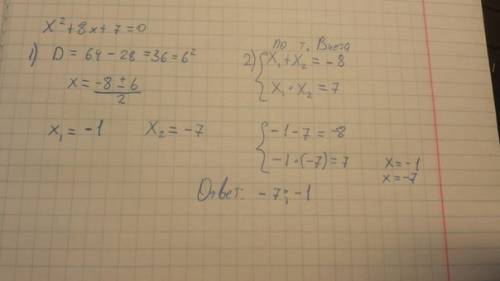 x² + 8x + 7 = 0
1) D = 64 - 28 = 36 = 6²
x = -8 ± 6 / 2
x₁ = -1 x₂ = -7
По т. Виета
2) { x₁ + x₂ = -8
x₁ · x₂ = 7
{ -1 - 7 = -8
-1 · (-7) = 7
x = -1
x = -7
Ответ: -7; -1